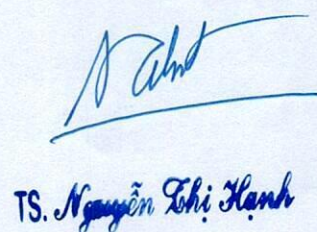 TS. Nguyễn Thị Hạnh